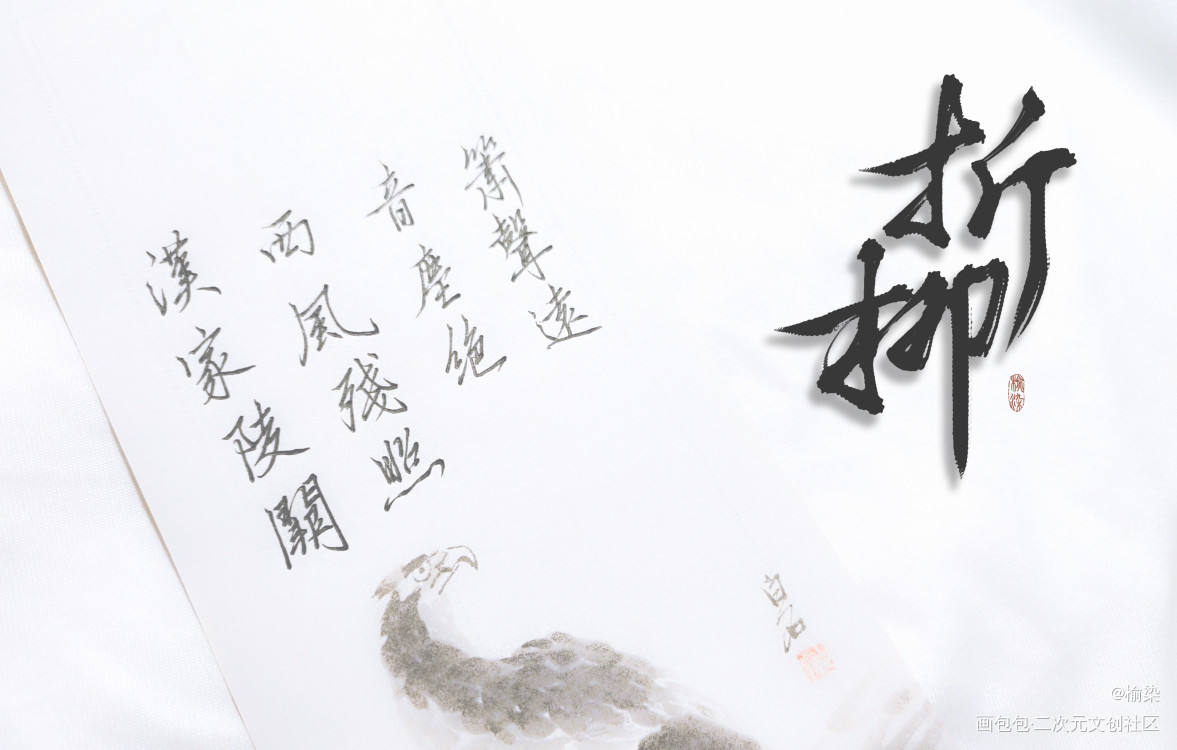 折柳
簫聲遠
音塵绝
西風殘照
漢家陵闕
白石
榆染
@榆染
画包包·二次元文创社区